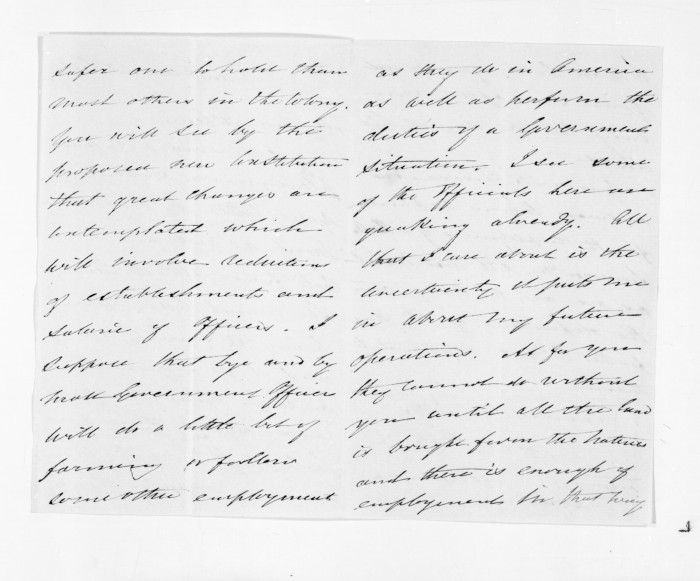 safer one to hold than
most others in the Colony.
You will see by the
proposed new Constitution
that great changes are
contemplated which
will involve reductions
of establishments and
salarie of Officers. I
suppose that bye and by
most Government Officer
will do a little bit of
farming or follow
some other employment
as they do in America
as well as perform the
duties of a Government
situation. I see some
of the Officials here are
quaking already. All
that I care about is the
uncertainty it puts me
in about my future
operations. As for you
they cannot do without
you until all the land
is bought from the Natives
and there is enough of
employment in that way